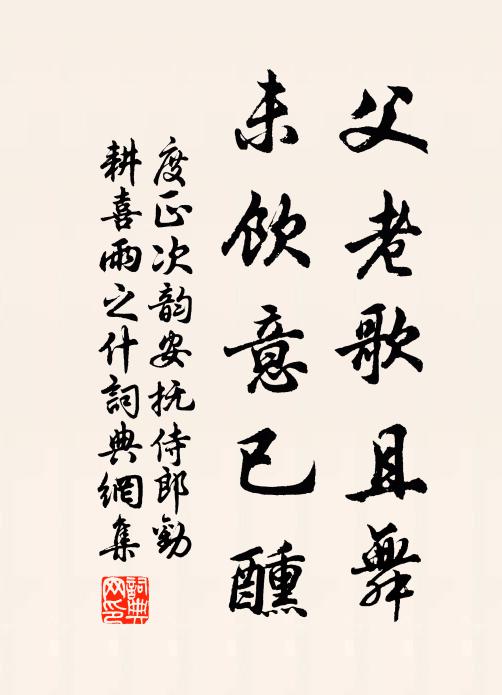 父老歌且舞
未饮意已醺
度正次韵安抚侍郎劝
耕喜雨之什詞典網集
詞典
网印